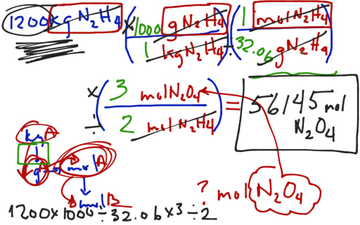 1200 kg N₂H₄ (×1000 g N₂H₄ / 1 kg N₂H₄) (1 mol N₂H₄ / ÷32.06 g N₂H₄)
×÷ (3 mol N₂O₄ / 2 mol N₂H₄) = 56145 mol N₂O₄
kg A
g → mol A
mol B
? mol N₂O₄
1200 × 1000 ÷ 32.06 × 3 ÷ 2